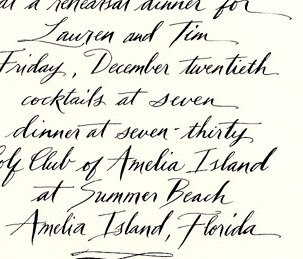 at a rehearsal dinner for
Lauren and Tim
Friday, December twentieth
cocktails at seven
dinner at seven-thirty
Golf Club of Amelia Island
at Summer Beach
Amelia Island, Florida